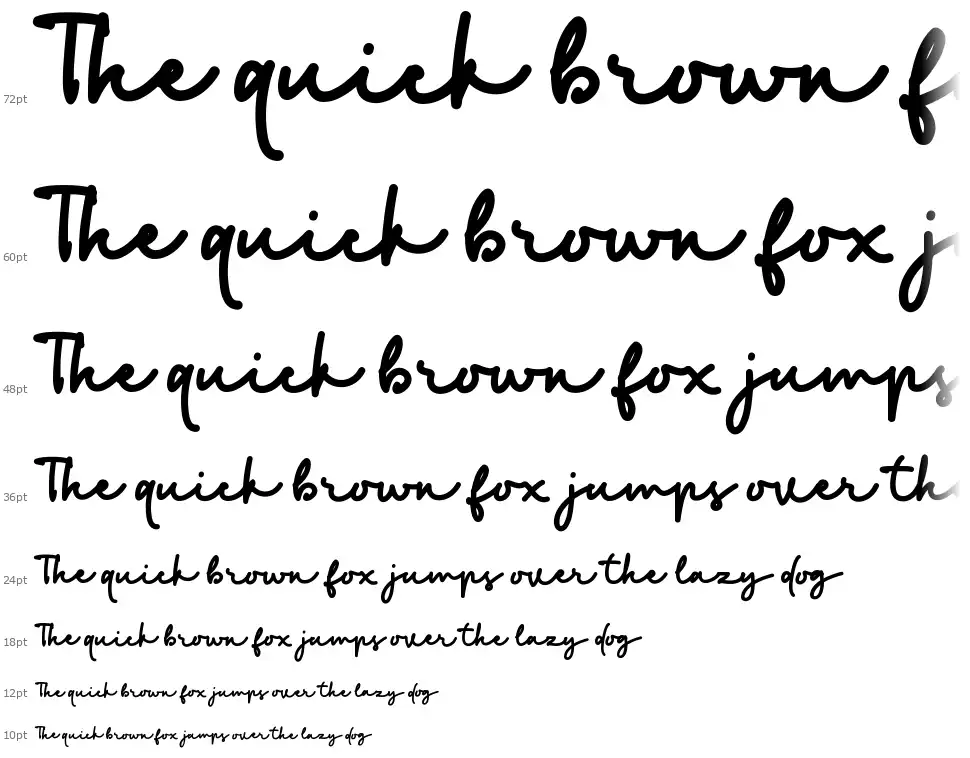 72pt The quick brown f
60pt The quick brown fox j
48pt The quick brown fox jumps
36pt The quick brown fox jumps over th
24pt The quick brown fox jumps over the lazy dog
18pt The quick brown fox jumps over the lazy dog
12pt The quick brown fox jumps over the lazy dog
10pt The quick brown fox jumps over the lazy dog